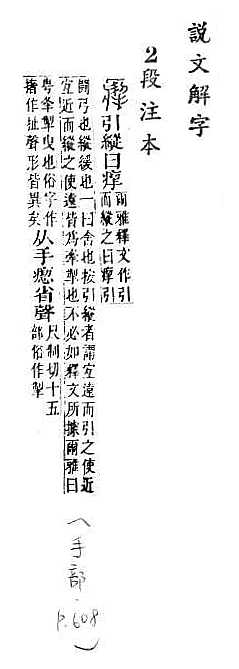 說文解字
2段注本
引縱曰
爾雅釋文作引
而縱之曰 引
開弓也縱緩也一曰舍也按引縱者謂宜遠而引之使近
宜近而縱之使遠皆爲牽掣也不必如釋文所據爾雅曰
甹夆掣曳也俗字作
撦作扯聲形皆異矣
从手瘛省聲
尺制切十五
部俗作掣
(手部.p.608)